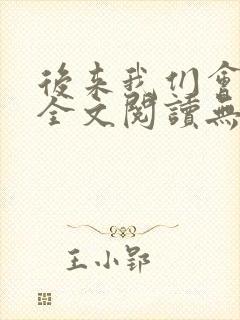 後来我们會
全文閱讀無
王小郢